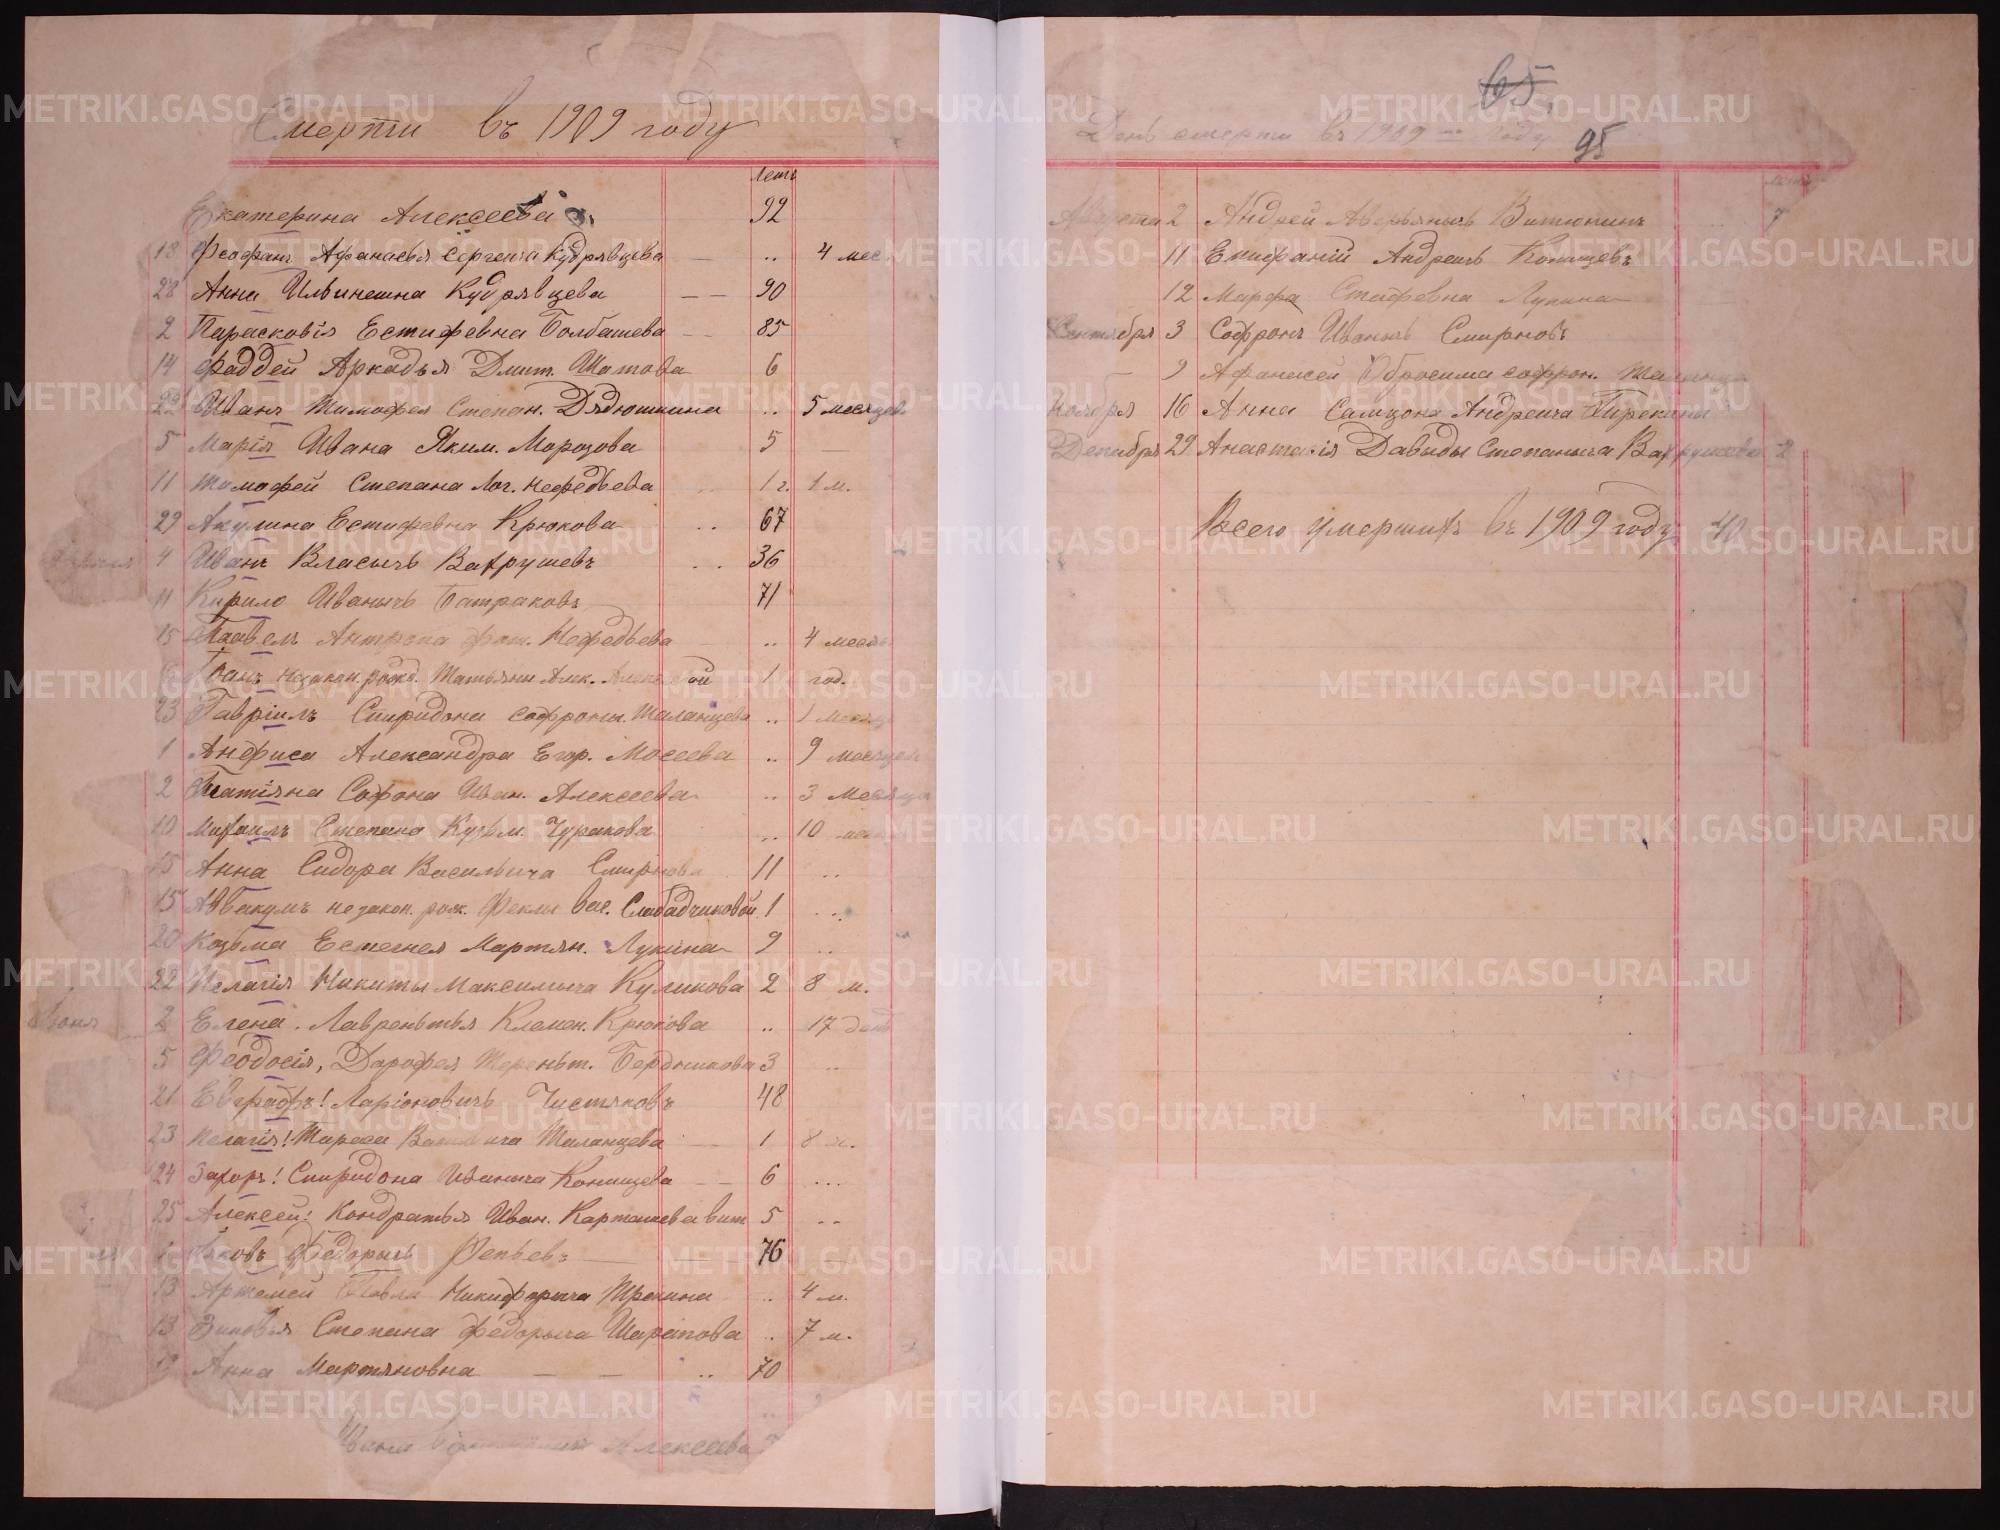 Смерти въ 1909 году
Летъ
Екатерина Алексеева 92
18 Феофанъ Афанасья Сергеича Кудрявцева — .. 4 мес.
28 Анна Ильинешна Кудрявцева — — 90
2 Парасковія Естифевна Болбашева — 85
14 Фаддей Аркадья Дмит. Шатова 6
22 Иванъ Тимофея Степан. Дядюшкина .. 5 месяцев
5 Марія Ивана Яким. Морозова 5 —
11 Тимофей Степана Лог. Нефедьева 1 г. 1 м.
29 Акулина Естифевна Крюкова .. 67
4 Иванъ Власычъ Вахрушевъ .. 36
11 Кирило Иванычъ Батраковъ 71
15 Павелъ Антропа Нефедьева .. 4 месяц
незакон. рожд. Татьяны Алек. 1 год.
23 Гавріилъ Спиридона Софроны. Таланцева .. 1 месяц
1 Анфиса Александра Егор. Мосеева .. 9 месяцев
2 Татіяна Софона Иван. Алексеева .. 3 месяца
10 Михаилъ Степана Кузьм. Чуракова .. 10 мес
15 Анна Сидора Васильича Смирнова 11 ..
15 Аввакумъ незакон. рож. Феклы Вас. Слабадчиковой 1 ...
20 Козьма Естегнея Мартян. Лукина 9 ..
22 Пелагія Никиты Максимыча Куликова 2 8 м.
Іюня 2 Елена. Лавреньтья Клемен. Крюкова .. 17 ден
5 Феодосія, Дарофея Тереньт. Бердникова 3 ..
21 Евграфъ! Ларіоновичъ Чистяковъ 48
23 Пелагія! Тараса Таланцева — 1 8 м.
24 Захоръ! Спиридона Иваныча Конищева — — 6 ...
25 Алексей! Кондратья Иван. Карташева 5 ..
Яковъ Федорычъ Репьевъ — — 76 —
13 Артемей Павла Никифорыча Трекина .. 4 м.
13 Зиновья Степана Федорыча Шарапова .. 7 м.
19 Анна Мартяновна — — .. 70
Алексеева
65.
День смерти въ 1909 году
95
летъ
Августа 2 Андрей Аверьянычъ Витюнинъ 7
11 Епифаній Андреичъ Конищевъ
12 Марфа Стафевна Лукина
Сентября 3 Софронъ Иванычъ Смирновъ
9 Афанасей Обросима Софрон.
Ноября 16 Анна Самцона Андреича Трекина
Декабря 29 Анастасія Давыды Степаныча Вахрушева 2
Всего умершихъ въ 1909 году 40
METRIKI.GASO-URAL.RU